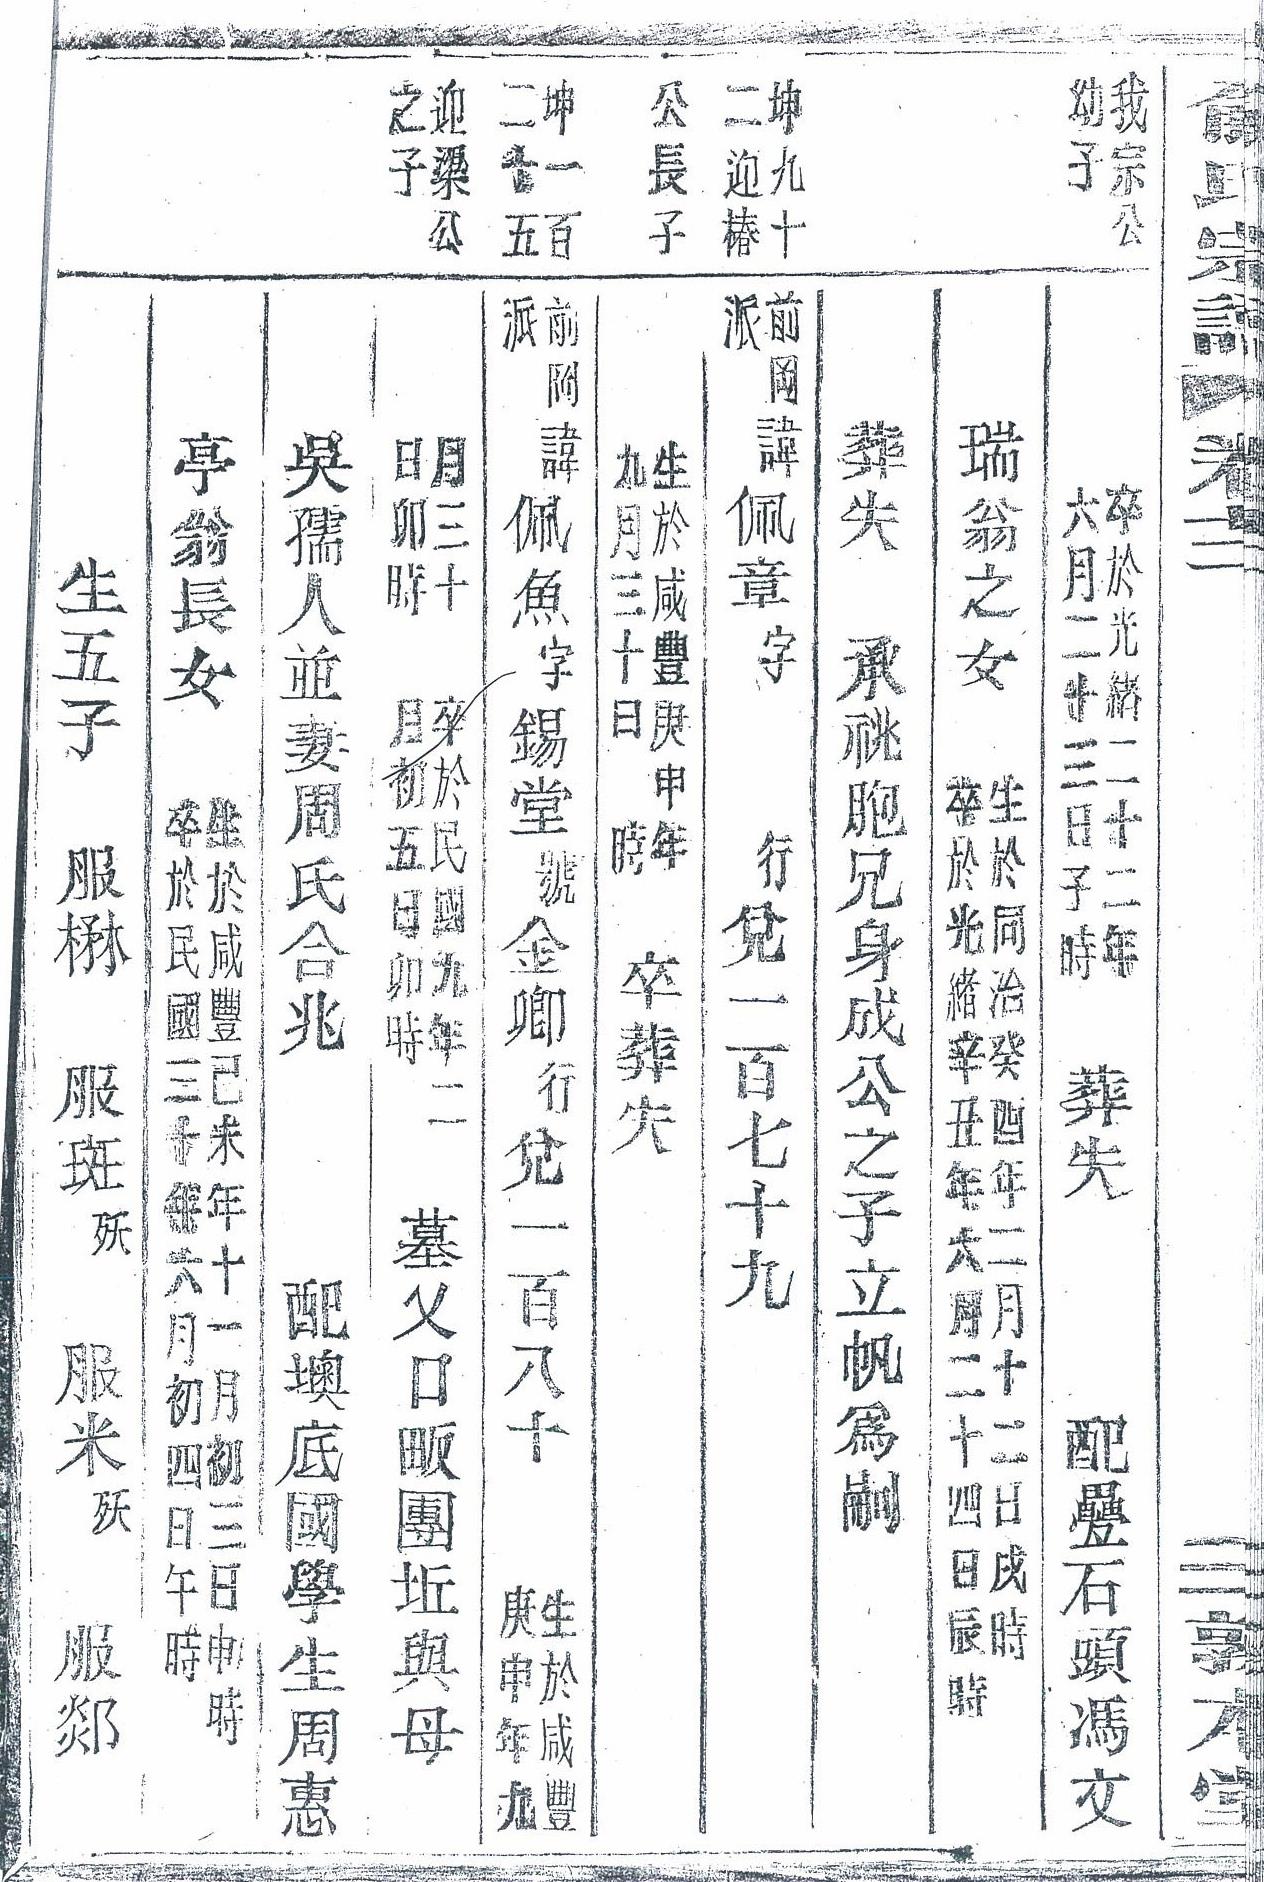 宗譜 卷三 三 敦本堂
我宗公
幼子
卒於光緒二十二年
六月二十三日子時
葬失 配疊石頭馮文
瑞翁之女
生於同治癸酉年二月十二日戌時
卒於光緒辛丑年六月二十四日辰時
葬失 承祧胞兄身成公之子立帆爲嗣
坤九十
二迎椿
前岡諱
派
佩章字 行兌一百七十九
公長子
生於咸豐庚申年
九月三十日 時
卒葬失
坤一百
二十五
前岡諱
派
佩魚字錫堂號金卿行兌一百八十
生於咸豐
庚申年九
迎梁公
之子
月三十
日卯時
卒於民國九年二
月初五日卯時
墓父口畈團坵與母
吳孺人並妻周氏合兆 配墺底國學生周惠
亭翁長女
生於咸豐己未年十一月初三日申時
卒於民國三十年六月初四日午時
生五子 服楙 服斑殀 服米殀 服郯